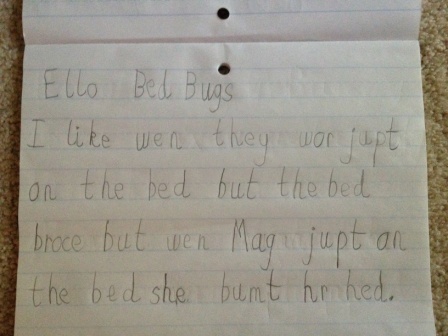 Ello Bed Bugs
I like wen they wor jupt
on the bed but the bed
broce but wen Mag jupt on
the bed she bumt hr hed.